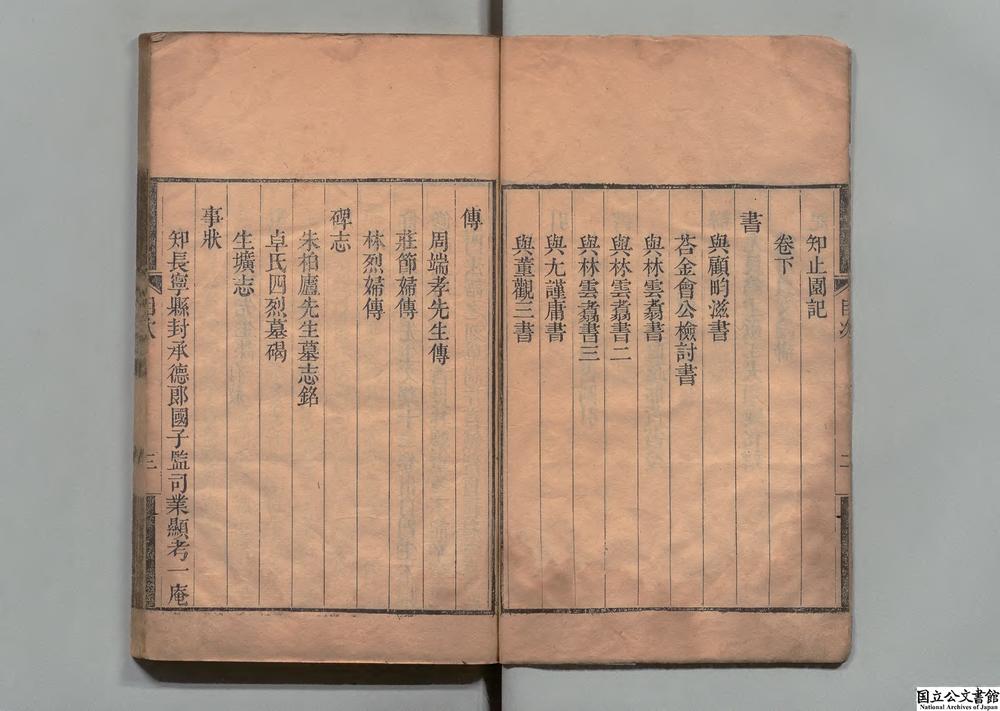 知止園記
卷下
書
與顧畇滋書
荅金會公檢討書
與林雲翥書
與林雲翥書二
與林雲翥書三
與尢謹庸書
與董觀三書
目次
二
傳
周端孝先生傳
莊節婦傳
林烈婦傳
碑志
朱柏廬先生墓志銘
卓氏四烈墓碣
生壙志
事狀
知長寧縣封承德郎國子監司業顯考一庵
目次
三
国立公文書館
National Archives of Japan